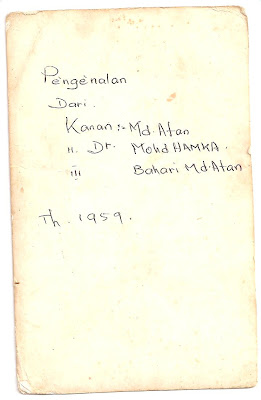 Pengenalan
Dari.
Kanan :- Md. Atan
II. Dr. Mohd HAMKA.
III Bahari Md. Atan
Th. 1959.